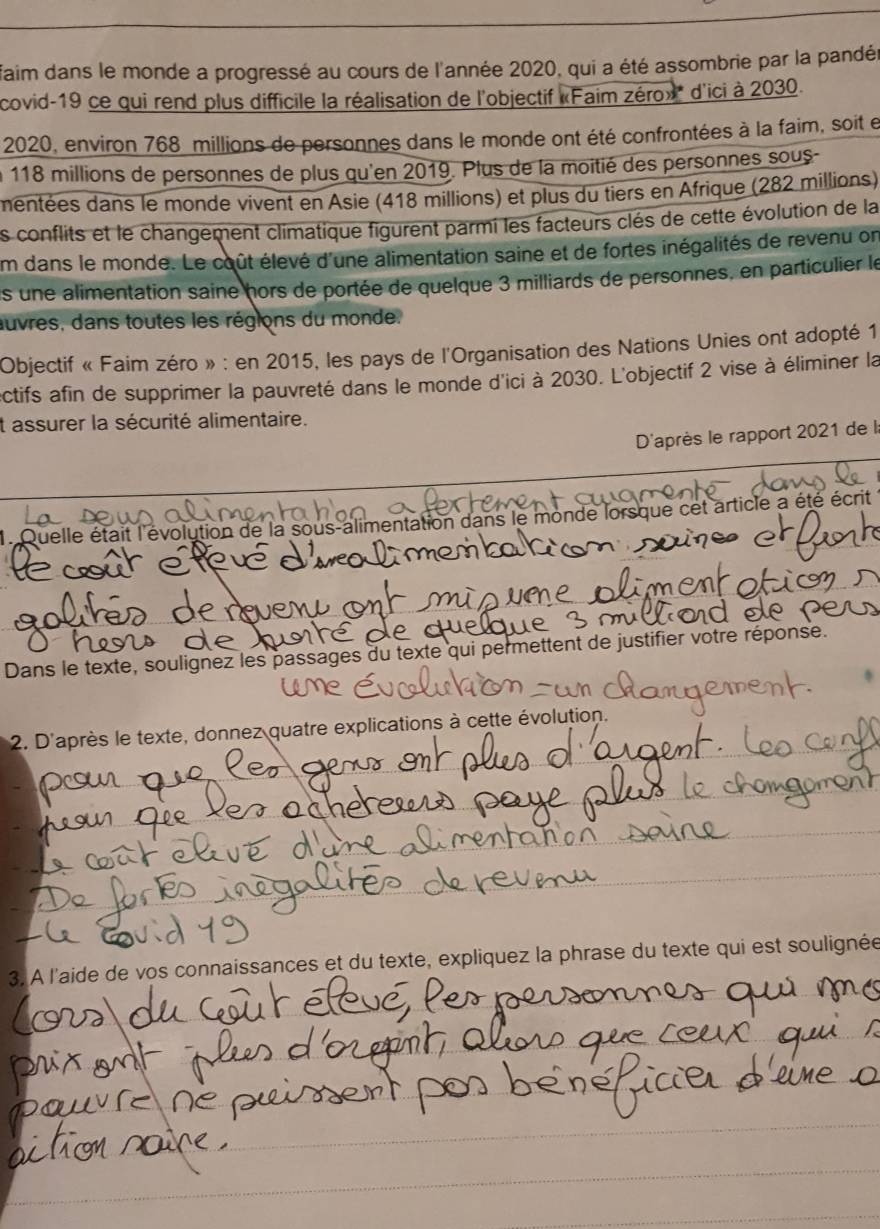 faim dans le monde a progressé au cours de l'année 2020, qui a été assombrie par la pandé
covid-19 ce qui rend plus difficile la réalisation de l'objectif «Faim zéro»* d'ici à 2030.
2020, environ 768 millions de personnes dans le monde ont été confrontées à la faim, soit e
118 millions de personnes de plus qu'en 2019. Plus de la moitié des personnes sous-
mentées dans le monde vivent en Asie (418 millions) et plus du tiers en Afrique (282 millions)
s conflits et le changement climatique figurent parmi les facteurs clés de cette évolution de la
m dans le monde. Le coût élevé d'une alimentation saine et de fortes inégalités de revenu on
s une alimentation saine hors de portée de quelque 3 milliards de personnes, en particulier le
auvres, dans toutes les régions du monde.
Objectif « Faim zéro » : en 2015, les pays de l'Organisation des Nations Unies ont adopté 1
ectifs afin de supprimer la pauvreté dans le monde d'ici à 2030. L'objectif 2 vise à éliminer la
t assurer la sécurité alimentaire.
D'après le rapport 2021 de l
La sous alimentation a fortement augmenté dans le
1. Quelle était l'évolution de la sous-alimentation dans le monde lorsque cet article a été écrit
le coût élevé saine et
galités de revenu ont mis une alimentation
hors de porté de quelque 3 milliard de pers
Dans le texte, soulignez les passages du texte qui permettent de justifier votre réponse.
une évolution = un changement.
2. D'après le texte, donnez quatre explications à cette évolution.
- pour que les gens ont plus d'argent. les conf
- pour que les acheteurs paye plus le changement
- le coût élevé d'une alimentation saine
- De fortes inégalités de revenu
- le covid 19
3. A l'aide de vos connaissances et du texte, expliquez la phrase du texte qui est soulignée
Lors du coût élevé, les personnes qui
prix ont plus d'argent, alors que ceux qui
pauvre ne puissent pas bénéficier d'une a
saine.